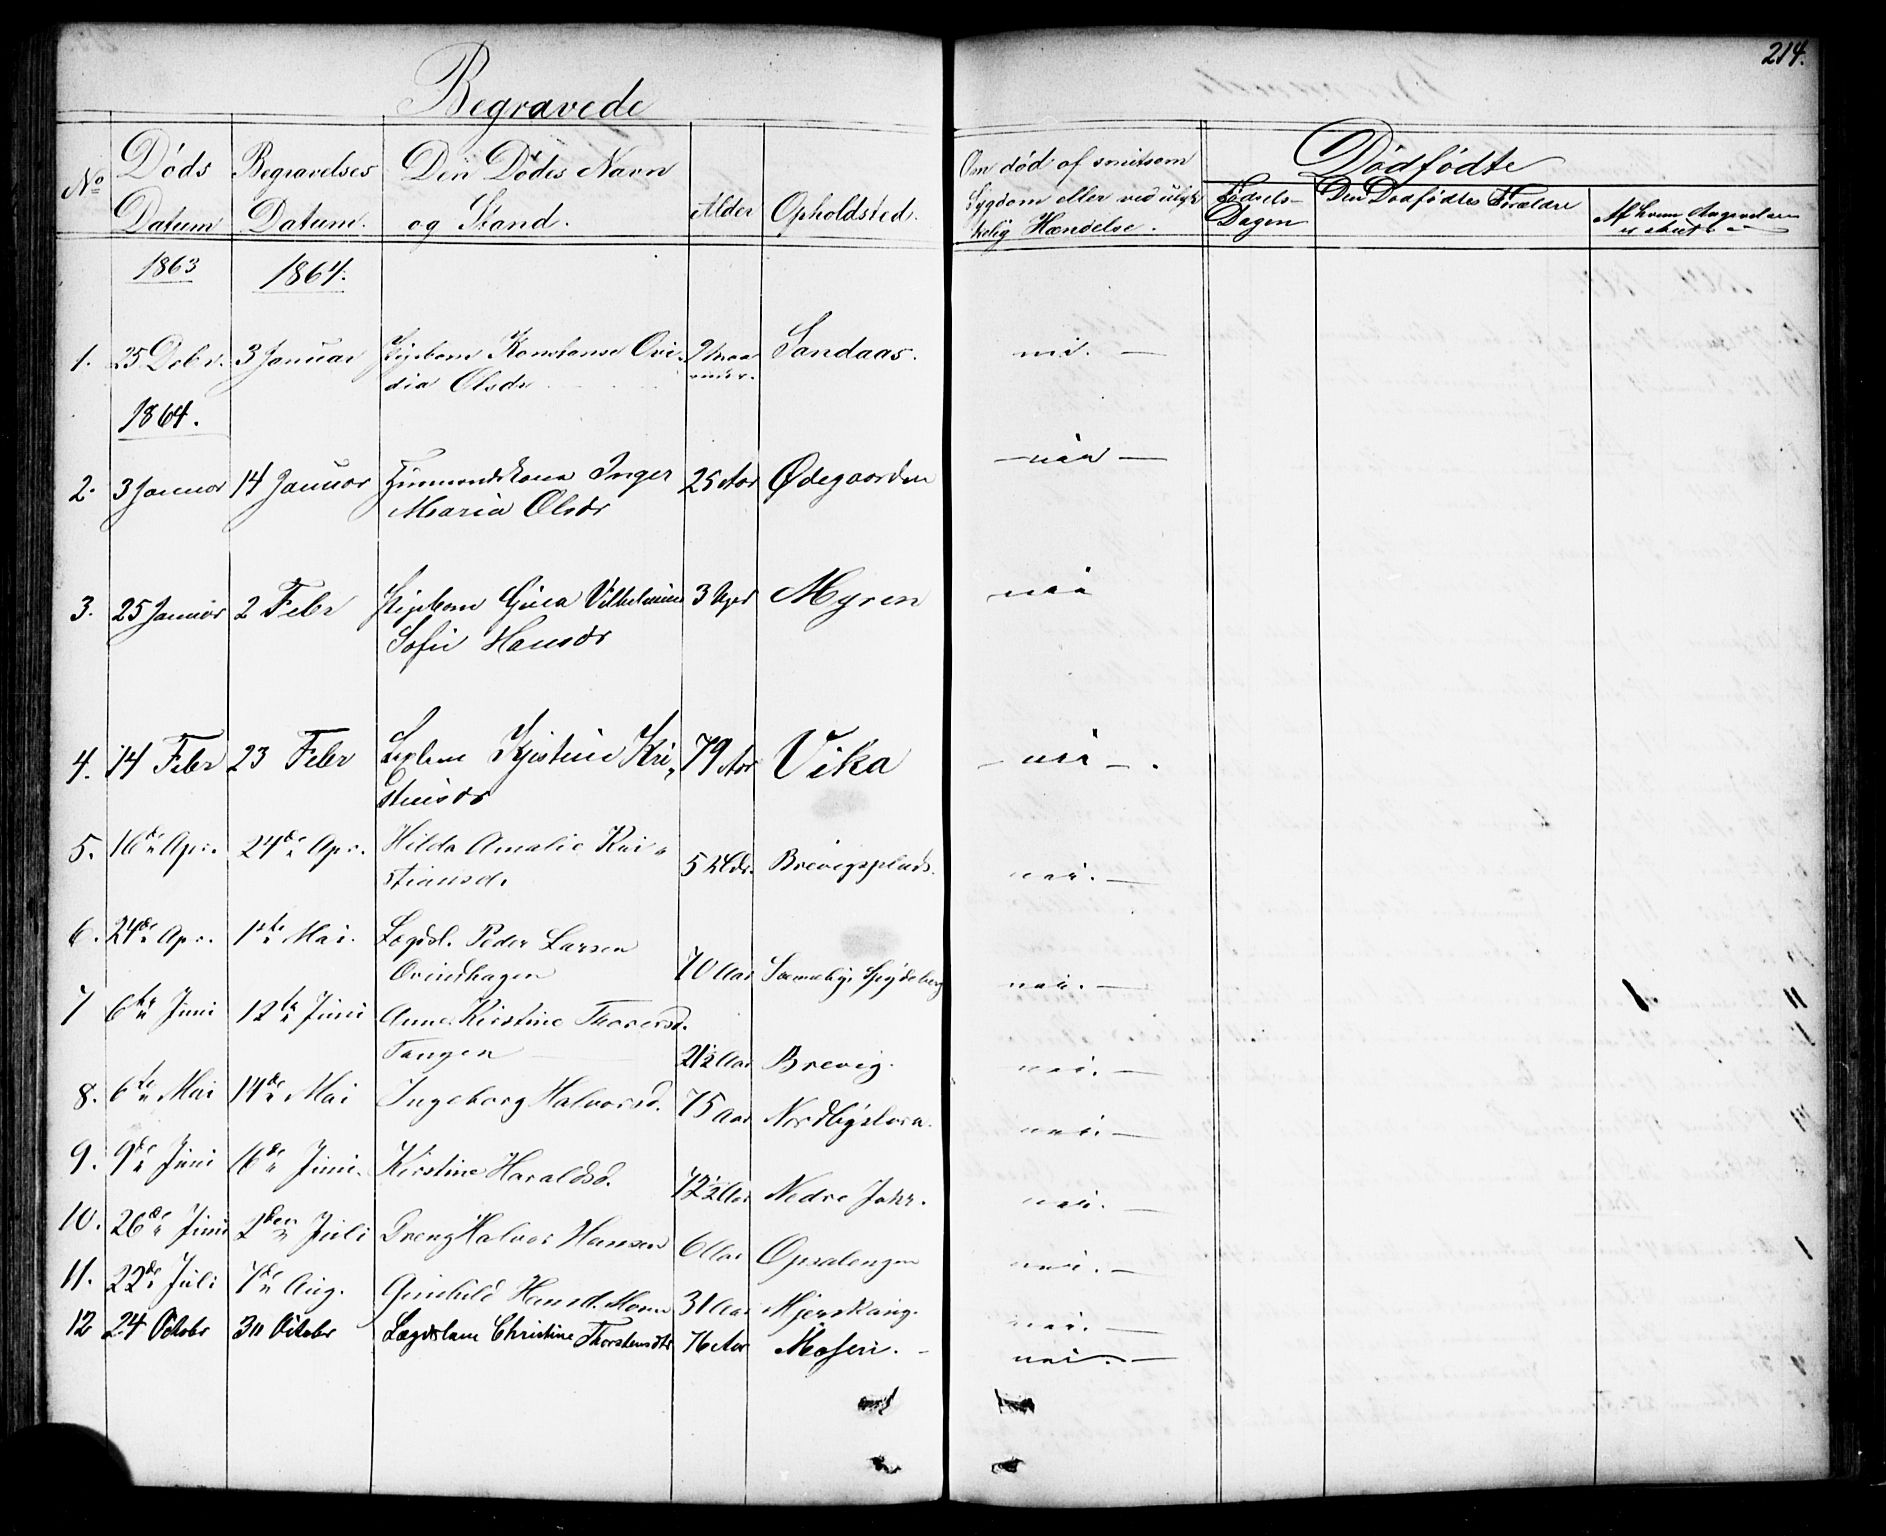 214.
Begravede
No
Døds Datum
Begravelses Datum.
Den Dødes Navn og Stand.
Alder
Opholdsted.
Om død af smitsom Sygdom eller ved ulykkelig Hændelse.
Dødfødte
Fødsels-Dagen
Den Dødfødtes Forældre
Af hvem Angivelsen er skeet
1863
1864.
1. 25 Debr. 3 Januar Konstanse Ovi-
dia Olsdr 9 Maaneder. Sandaas. nei. —
1864.
2. 3 Januar 14 Januar Inger
Maria Olsdr 25 Aar Ødegaarden — nei —
3. 25 Januar 2 Febr Vilhelmine
Sofie Hansdr 3 Uger Myren nei
4. 14 Febr 23 Febr Kjistine Kri-
stiansdr 79 Aar Vika — nei — .
5. 16de Apr. 24de Apr. Hilda Amalie Kri-
stiansd. 5 Uger. Brevigsplads. nei. —
6. 24de Apr. 1ste Mai. Lægdsl. Peder Larsen
Ovindhagen 70 Aar Spydeberg nei. —
7 6te Juni 12te Juni Anne Kirstine Thorersd.
Tangen — 21½ Aar Brevig. nei. —
8. 6te Mai 14de Mai Ingeborg Halvorsd. 75 Aar Nordbystora. nei. —
9. 9de Juni 16de Juni. Kirstine Haraldsd. 72½ Aar Nedre Jahr. nei. —
10. 26de Juni 2den Juli Dreng Halvor Hansen 6 Aar Opsalengen nei. —
11. 22de Juli 7de Aug. Gunhild Hansd. Moen 31 Aar Mjerskaug. nei. —
12 24 Octobr 30 Octobr Lægdslem Christine Thorstensdtr 76 Aar Mosen. — nei. —